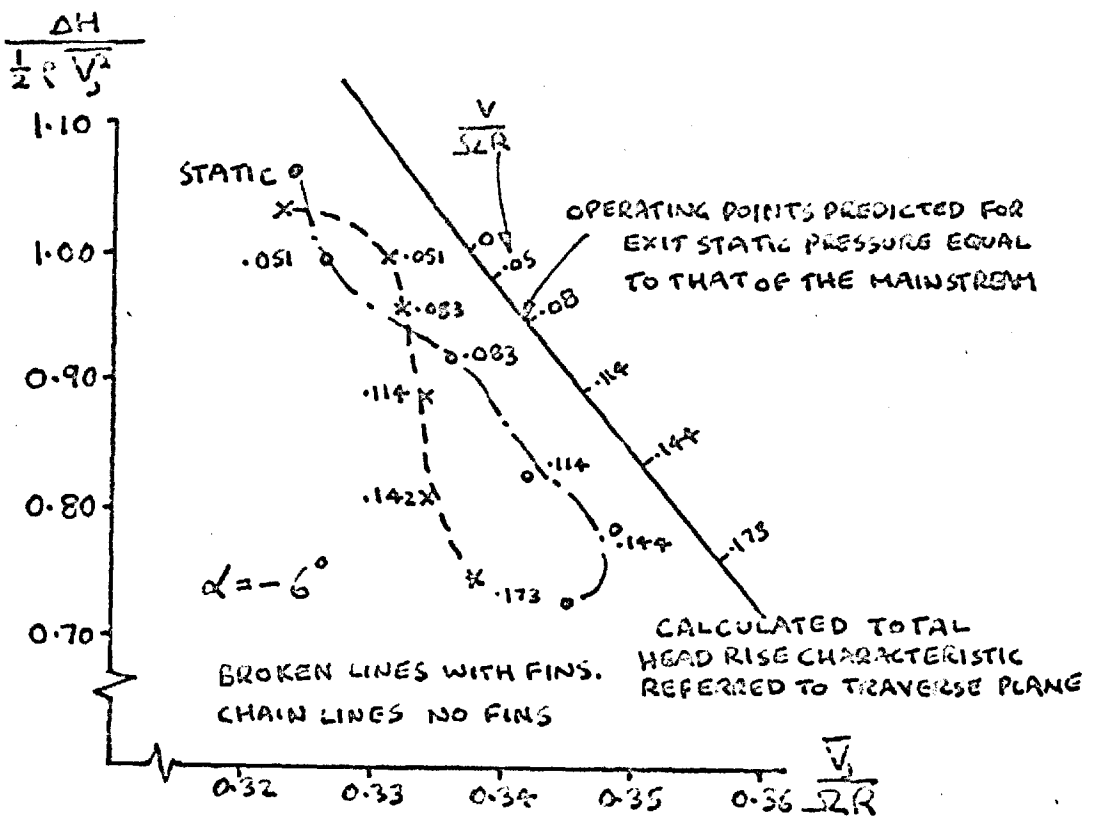 ΔH
½ ρ V̅ⱼ²
1.10
1.00
0.90
0.80
0.70
STATIC
V
ΩR
OPERATING POINTS PREDICTED FOR
EXIT STATIC PRESSURE EQUAL
TO THAT OF THE MAINSTREAM
0
.05
.08
.114
.144
.173
.051
.051
.083
.083
.114
.114
.142
.144
.173
α = -6°
BROKEN LINES WITH FINS.
CHAIN LINES NO FINS
CALCULATED TOTAL
HEAD RISE CHARACTERISTIC
REFERRED TO TRAVERSE PLANE
0.32
0.33
0.34
0.35
0.36
V̅ⱼ
ΩR